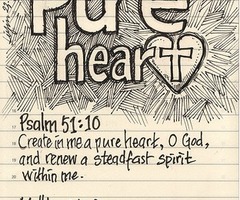 Pure
heart
Psalm 51:10
Create in me a pure heart, O God,
and renew a steadfast spirit
within me.